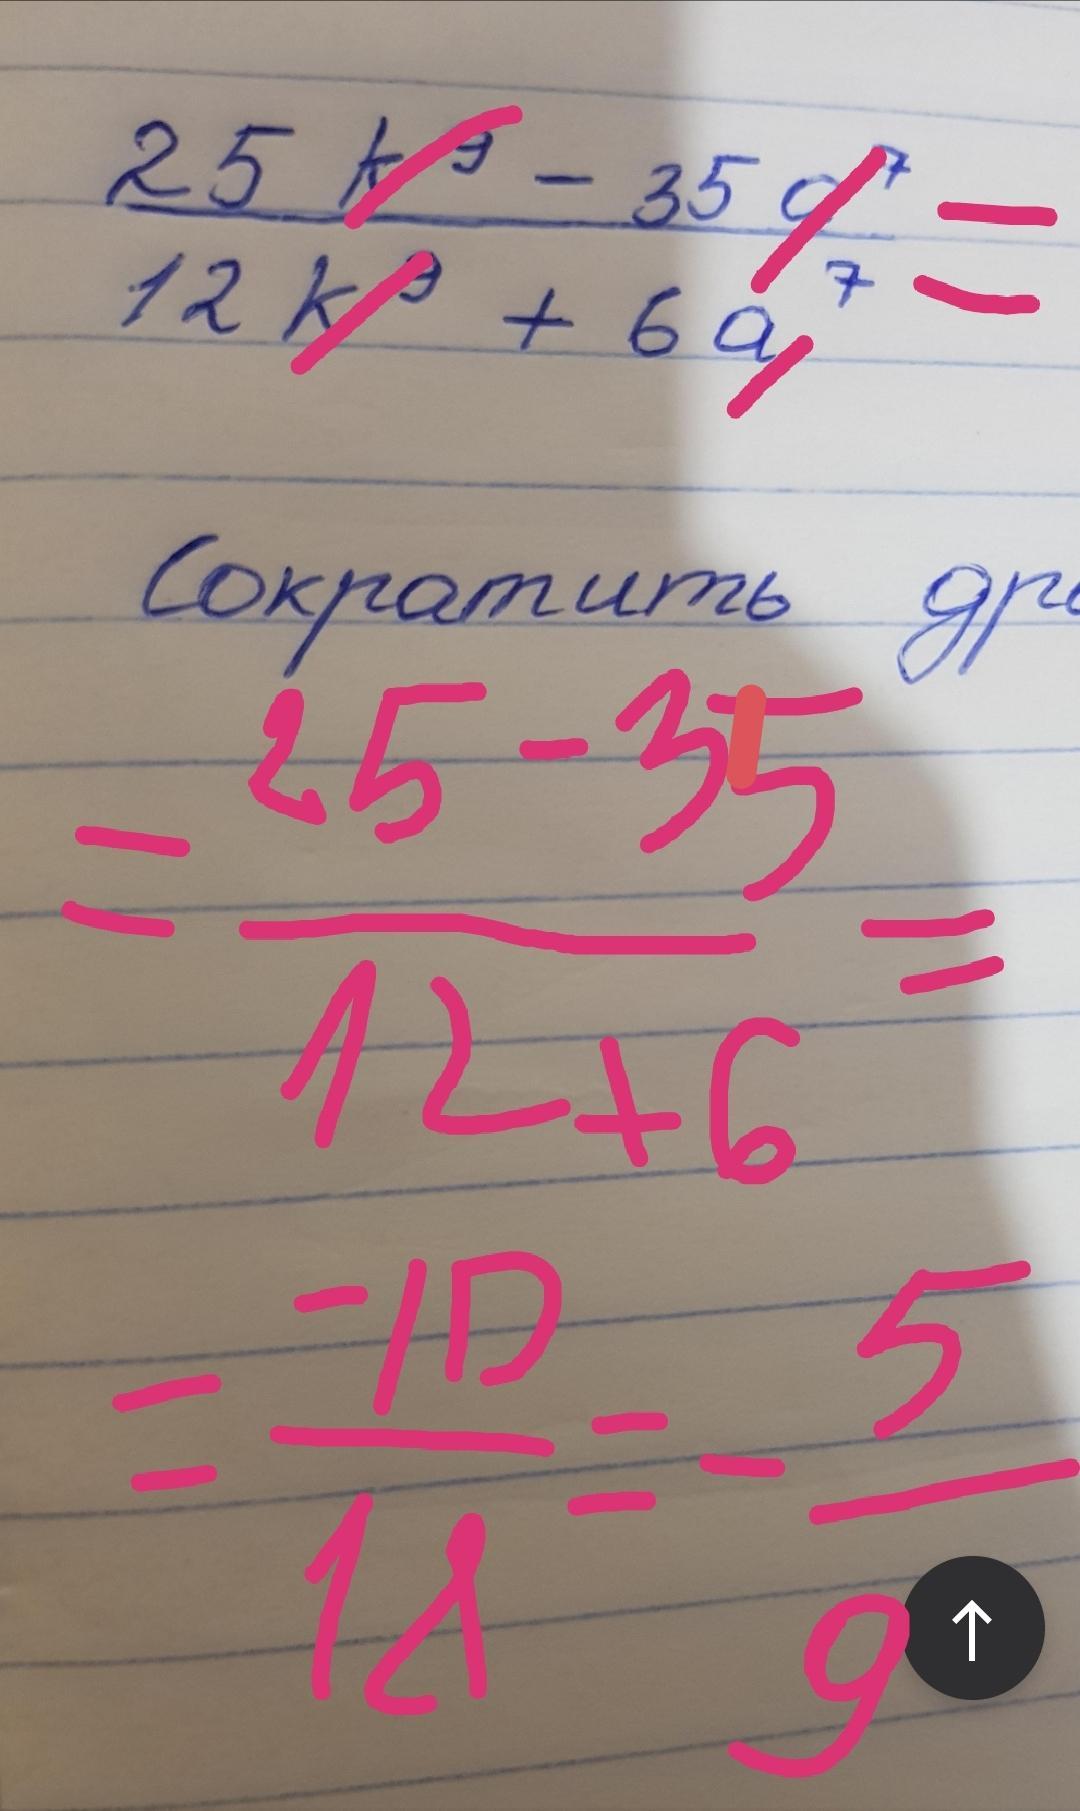 25 k⁹ - 35a⁷ =
12 k⁹ + 6a⁷
Сократить дро
= 25 - 35 =
12 + 6
= -10 = - 5
18 9